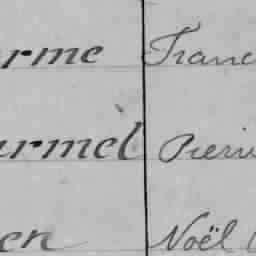 arme Franc
urmel Pierr
en Noël